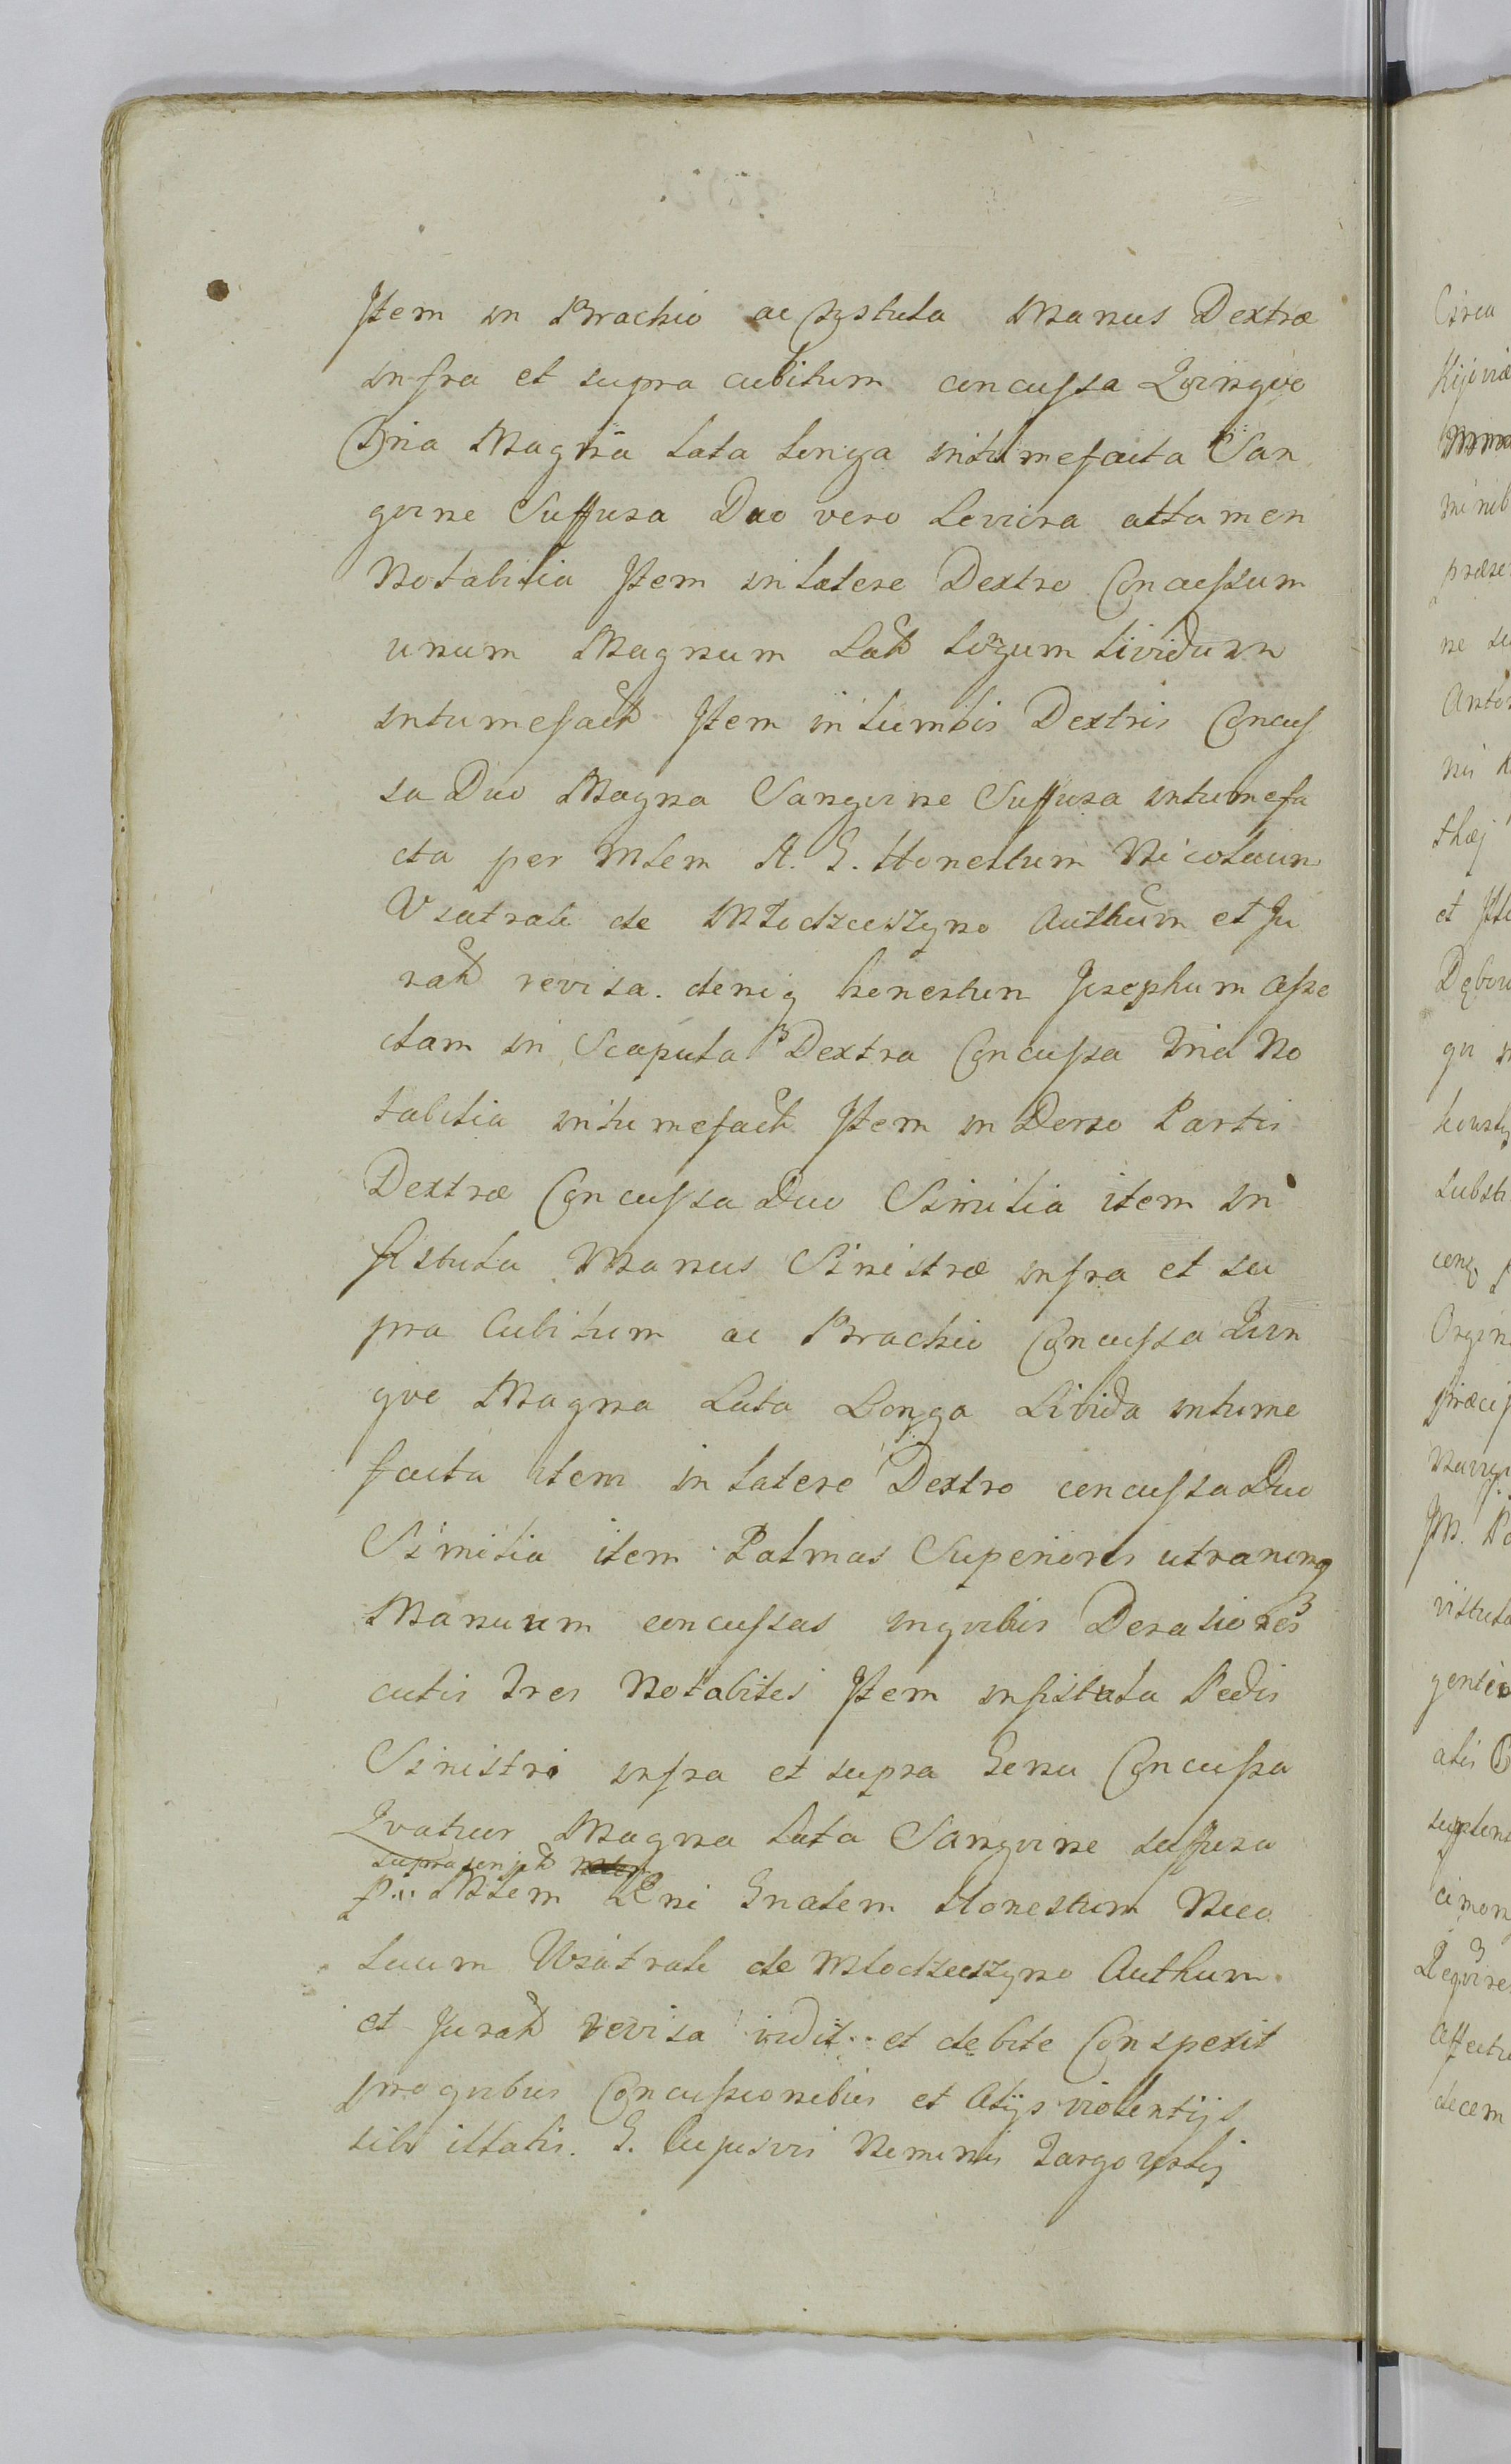 Item in Brachio ac fistula Manus Dextræ
infra et supra cubitum concussa Qvinqve
Tria Magna lata longa intumefacta San
gvine Suffusa Duo vero Leviora attamen
Notabilia Item in latere Dextro Concussum
unum Magnum Lat longum lividum
intumefact Item in lumbis Dextris Concus
sa Duo Magna Sangvine Suffusa intumefa
cta per Mlem A. G. Honestum Nicolaum
Usatrali de Młodzieszyno Authum et Ju
rat revisa. deniq honestum Josephum
in Scapula Dextra Concussa tria No
tabilia intumefact Item in Dorso Partis
Dextræ Concussa Duo Similia item in
fistula Manus Sinistræ infra et su
pra Cubitum ac Brachio Concussa Qvin
qve Magna Lata Longa Livida intume
facta item in latere Dextro concussa Duo
Similia item Palmas Superiores utranumq
Manuum concussas inqvibus Derasiones
cutis tres Notabiles Item in fistula Pedis
Sinistri infra et supra Genu Concussa
Qvatuor Magna lata Sangvine suffusa
suprascript
p Mlem Rni Gnalem Honestum Nico
laum Wsatrali de Młodzieszyno Authum
et Jurat revisa vidit et debite Conspexit
pro qvibus Concussionibus et Alijs violentijs
sibi illatis. G. Cujusvis Neminis Targowski
Circa
Kijoviæ
minib
præse
ne su
Anto
nii K
thæj
et Ite
Dębow
qvi
substi
conq
Orgin
præci
vistula
gentio
alis
supleme
cimon
Reqvire
Affectu
decem